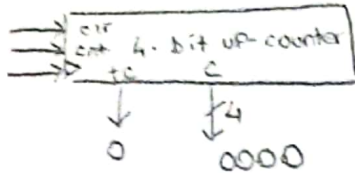 clr
cnt 4-bit up-counter
tc C
4
0 0000